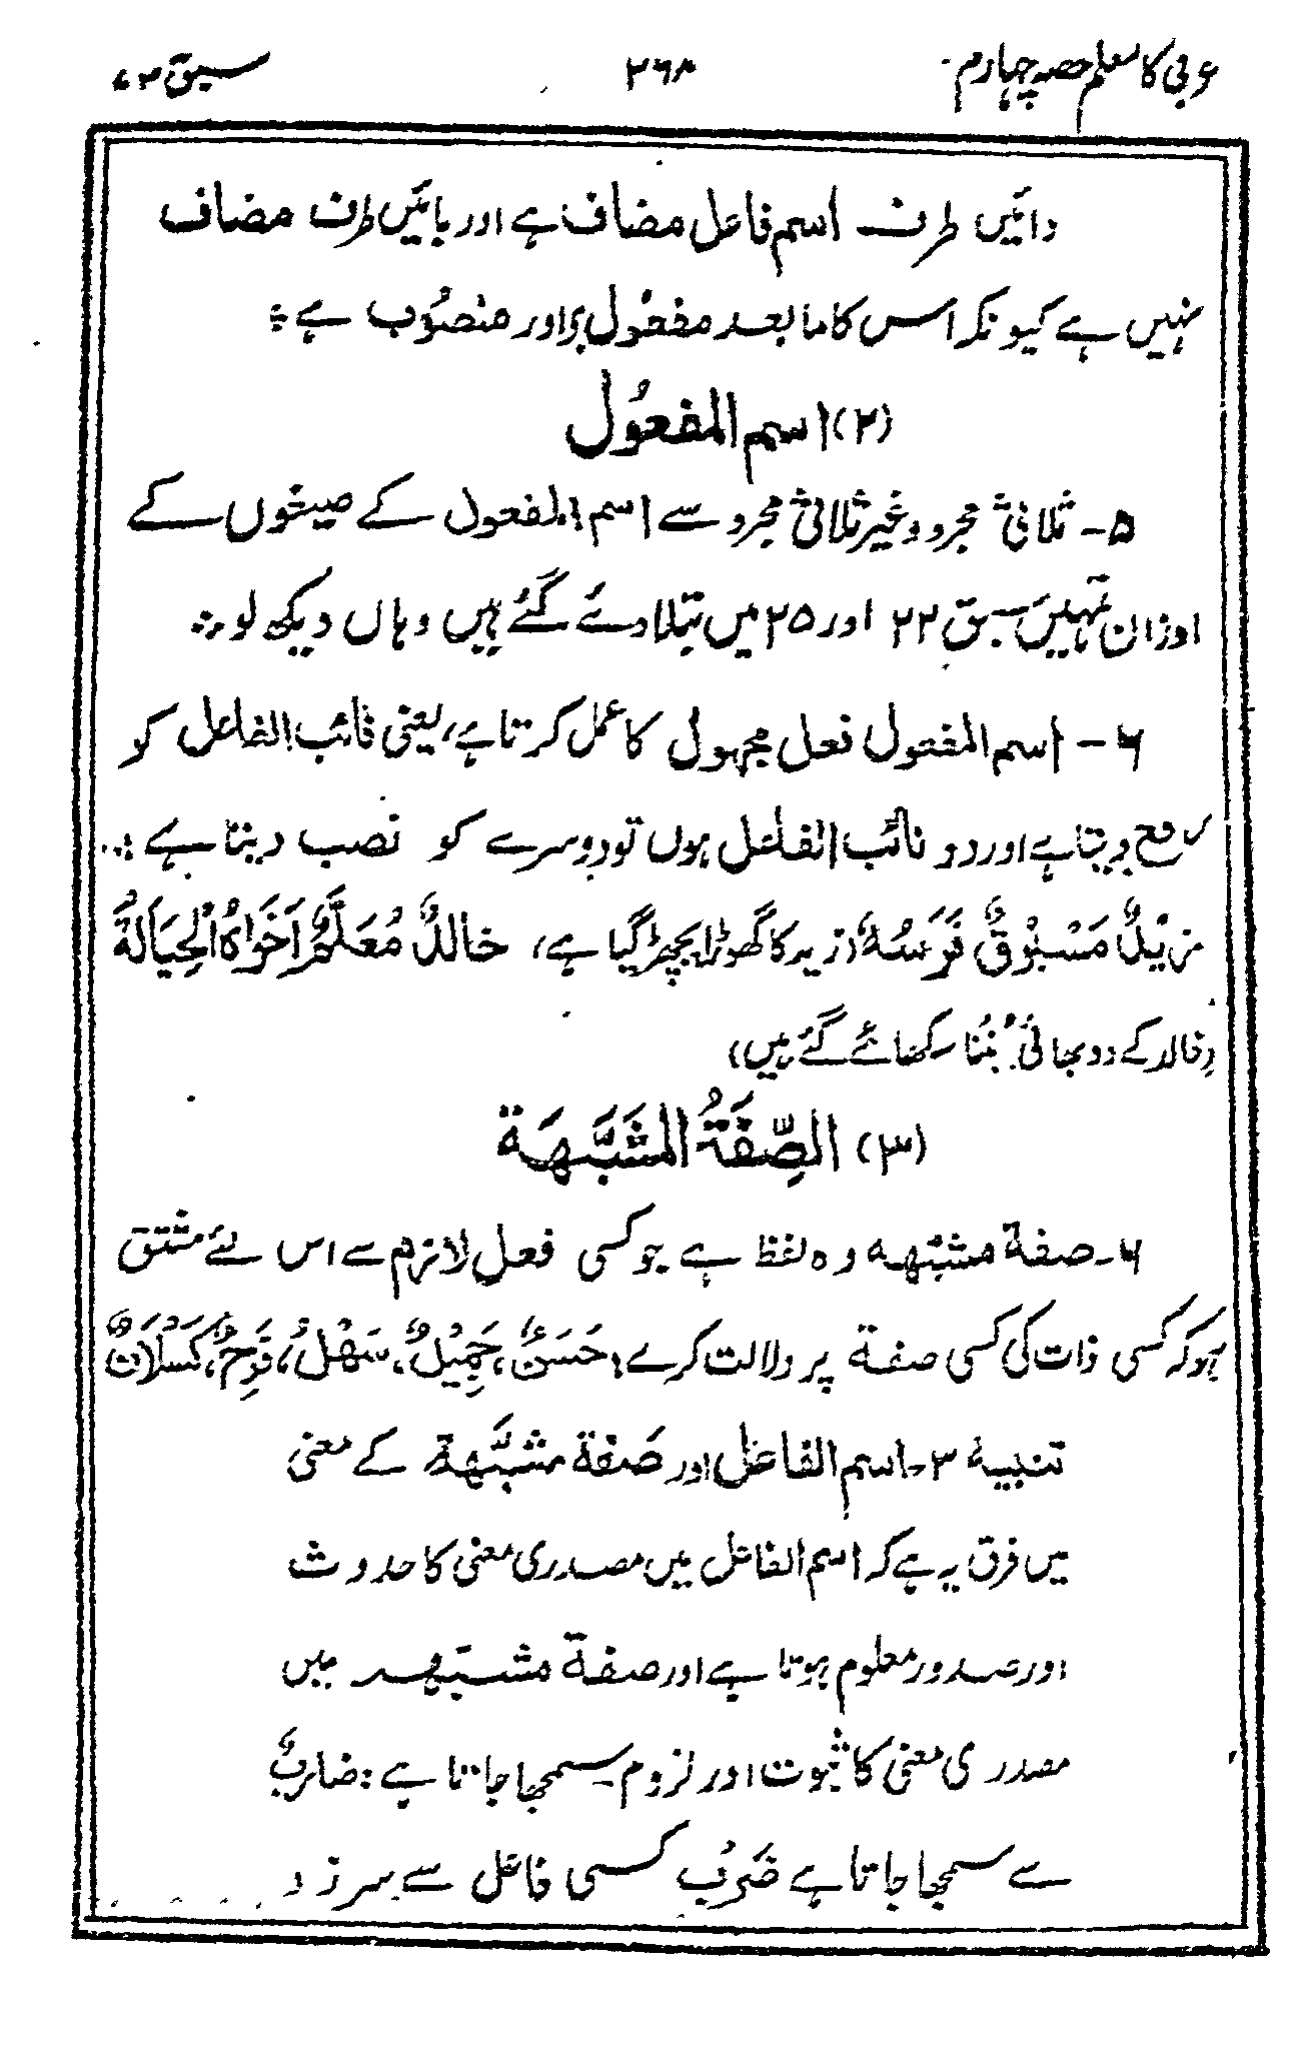 عربی کا معلم حصہ چہارم ۲۶۸ سبق ۷۳
دائیں طرف اسم فاعل مضاف ہے اور بائیں طرف مضاف
نہیں ہے کیونکہ اس کا ما بعد مفعُول پر اور منصوُب ہے ÷
(۲) اسم المفعُول
۵- ثلاثی مجرد و غیر ثلاثی مجرد سے اسم المفعول کے صیغوں کے
اوزان تمہیں سبق ۲۲ اور ۲۵ میں بتلا دئے گئے ہیں وہاں دیکھ لو ÷
۶- اسم المفعول فعل مجہول کا عمل کرتا ہے، یعنی نائب الفاعل کو
رفع دیتا ہے اور دو نائب الفاعل ہوں تو دوسرے کو نصب دیتا ہے :
زَيْدٌ مَسْبُوْقٌ فَرَسُهٗ (زید کا گھوڑا پچھڑ گیا ہے)، خالدٌ مُعَلَّمٌ اَخَوَاهُ الْحِيَاكَةَ
(خالد کے دو بھائی بُننا سکھائے گئے ہیں)
(۳) الصِّفَةُ المشَبَّهَة
۶- صفة مشبّهه وہ لفظ ہے جو کسی فعل لازم سے اس لئے مشتق
ہو کہ کسی ذات کی کسی صفة پر دلالت کرے: حَسَنٌ، جَمِيْلٌ، سَهْلٌ، فَرِحٌ، كَسْلَانُ
تنبیه ۳- اسم الفاعل اور صَفة مشبَّهة کے معنی
میں فرق یہ ہے کہ اسم الفاعل میں مصدری معنی کا حدوث
اور صدور معلوم ہوتا ہے اور صفة مشبّهه میں
مصدری معنی کا ثبوت اور لزوم سمجھا جاتا ہے: ضاربٌ
سے سمجھا جاتا ہے ضَرْب کسی فاعل سے سرزد